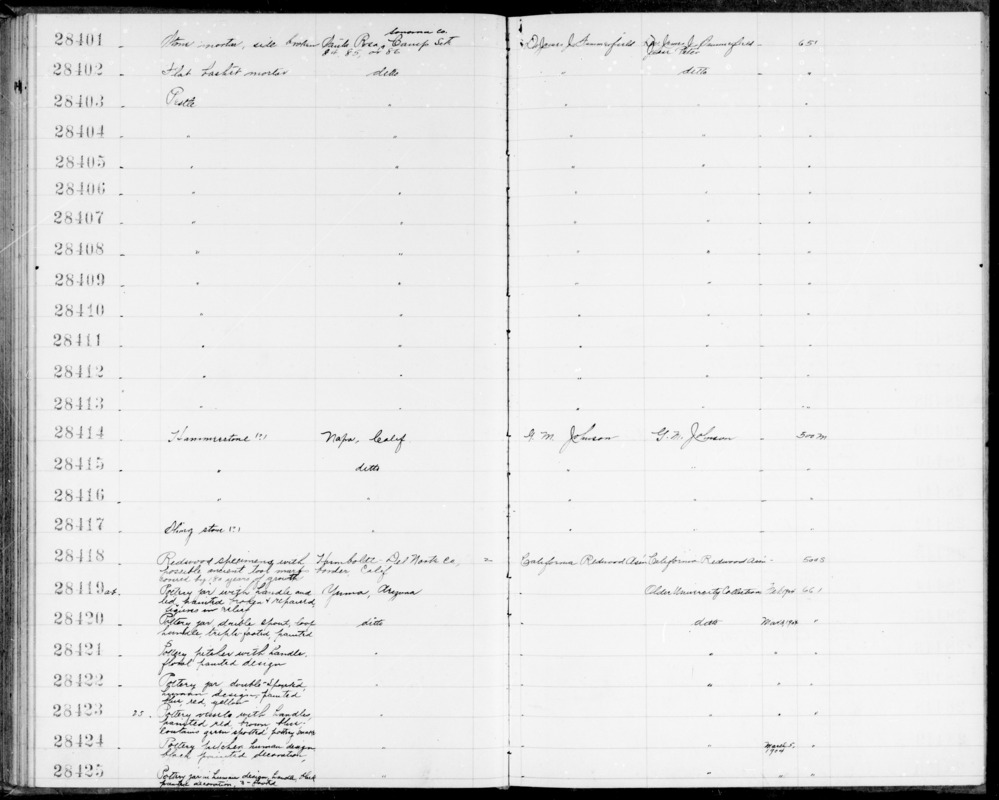 Sonoma Co.
28401 - Stone mortar, side broken Santa Rosa, Camp Site James J. Summerfield James J. Summerfield - 651
84, 85, or 86
28402 - Flat basket mortar ditto " ditto - "
28403 - Pestle " " " - "
28404 - " " " " - "
28405 - " " " " - "
28406 - " " " " - "
28407 - " " " " - "
28408 - " " " " - "
28409 - " " " " - "
28410 - " " " " - "
28411 - " " " " - "
28412 - " " " " - "
28413 - " " " " - "
28414 - Hammerstone (?) Napa, Calif Johnson Johnson - 500 M
28415 - " ditto " " - "
28416 - " " " " - "
28417 - Sling stone (?) " " " - "
28418 - Redwood specimens with Humboldt - Del Norte Co, 2 California Redwood Ass'n California Redwood Ass'n - 500 S
possible ancient tool marks border Calif
covered by 80 years of growth
28419 ab. Pottery jar with handle and Yuma, Arizona Older University Collection Feb 1904 661
lid, painted broken & repaired,
figures in relief
28420 - Pottery jar, double spout, loop ditto " ditto Mar 1904 "
handle, triple footed, painted
28421 - Pottery pitcher with handle, " " " " "
floral painted design
28422 - Pottery jar double-spouted, " " " " "
human design, painted
blue red, yellow
28423 23. Pottery vessels with handles, " " " " "
painted red, brown, blue.
Contains green spotted pottery
28424 - Pottery pitcher, human design " " " March 5, 1904 "
black painted decoration,
28425 - Pottery jar in human design, handle, black " " " " "
painted decoration, 3-footed